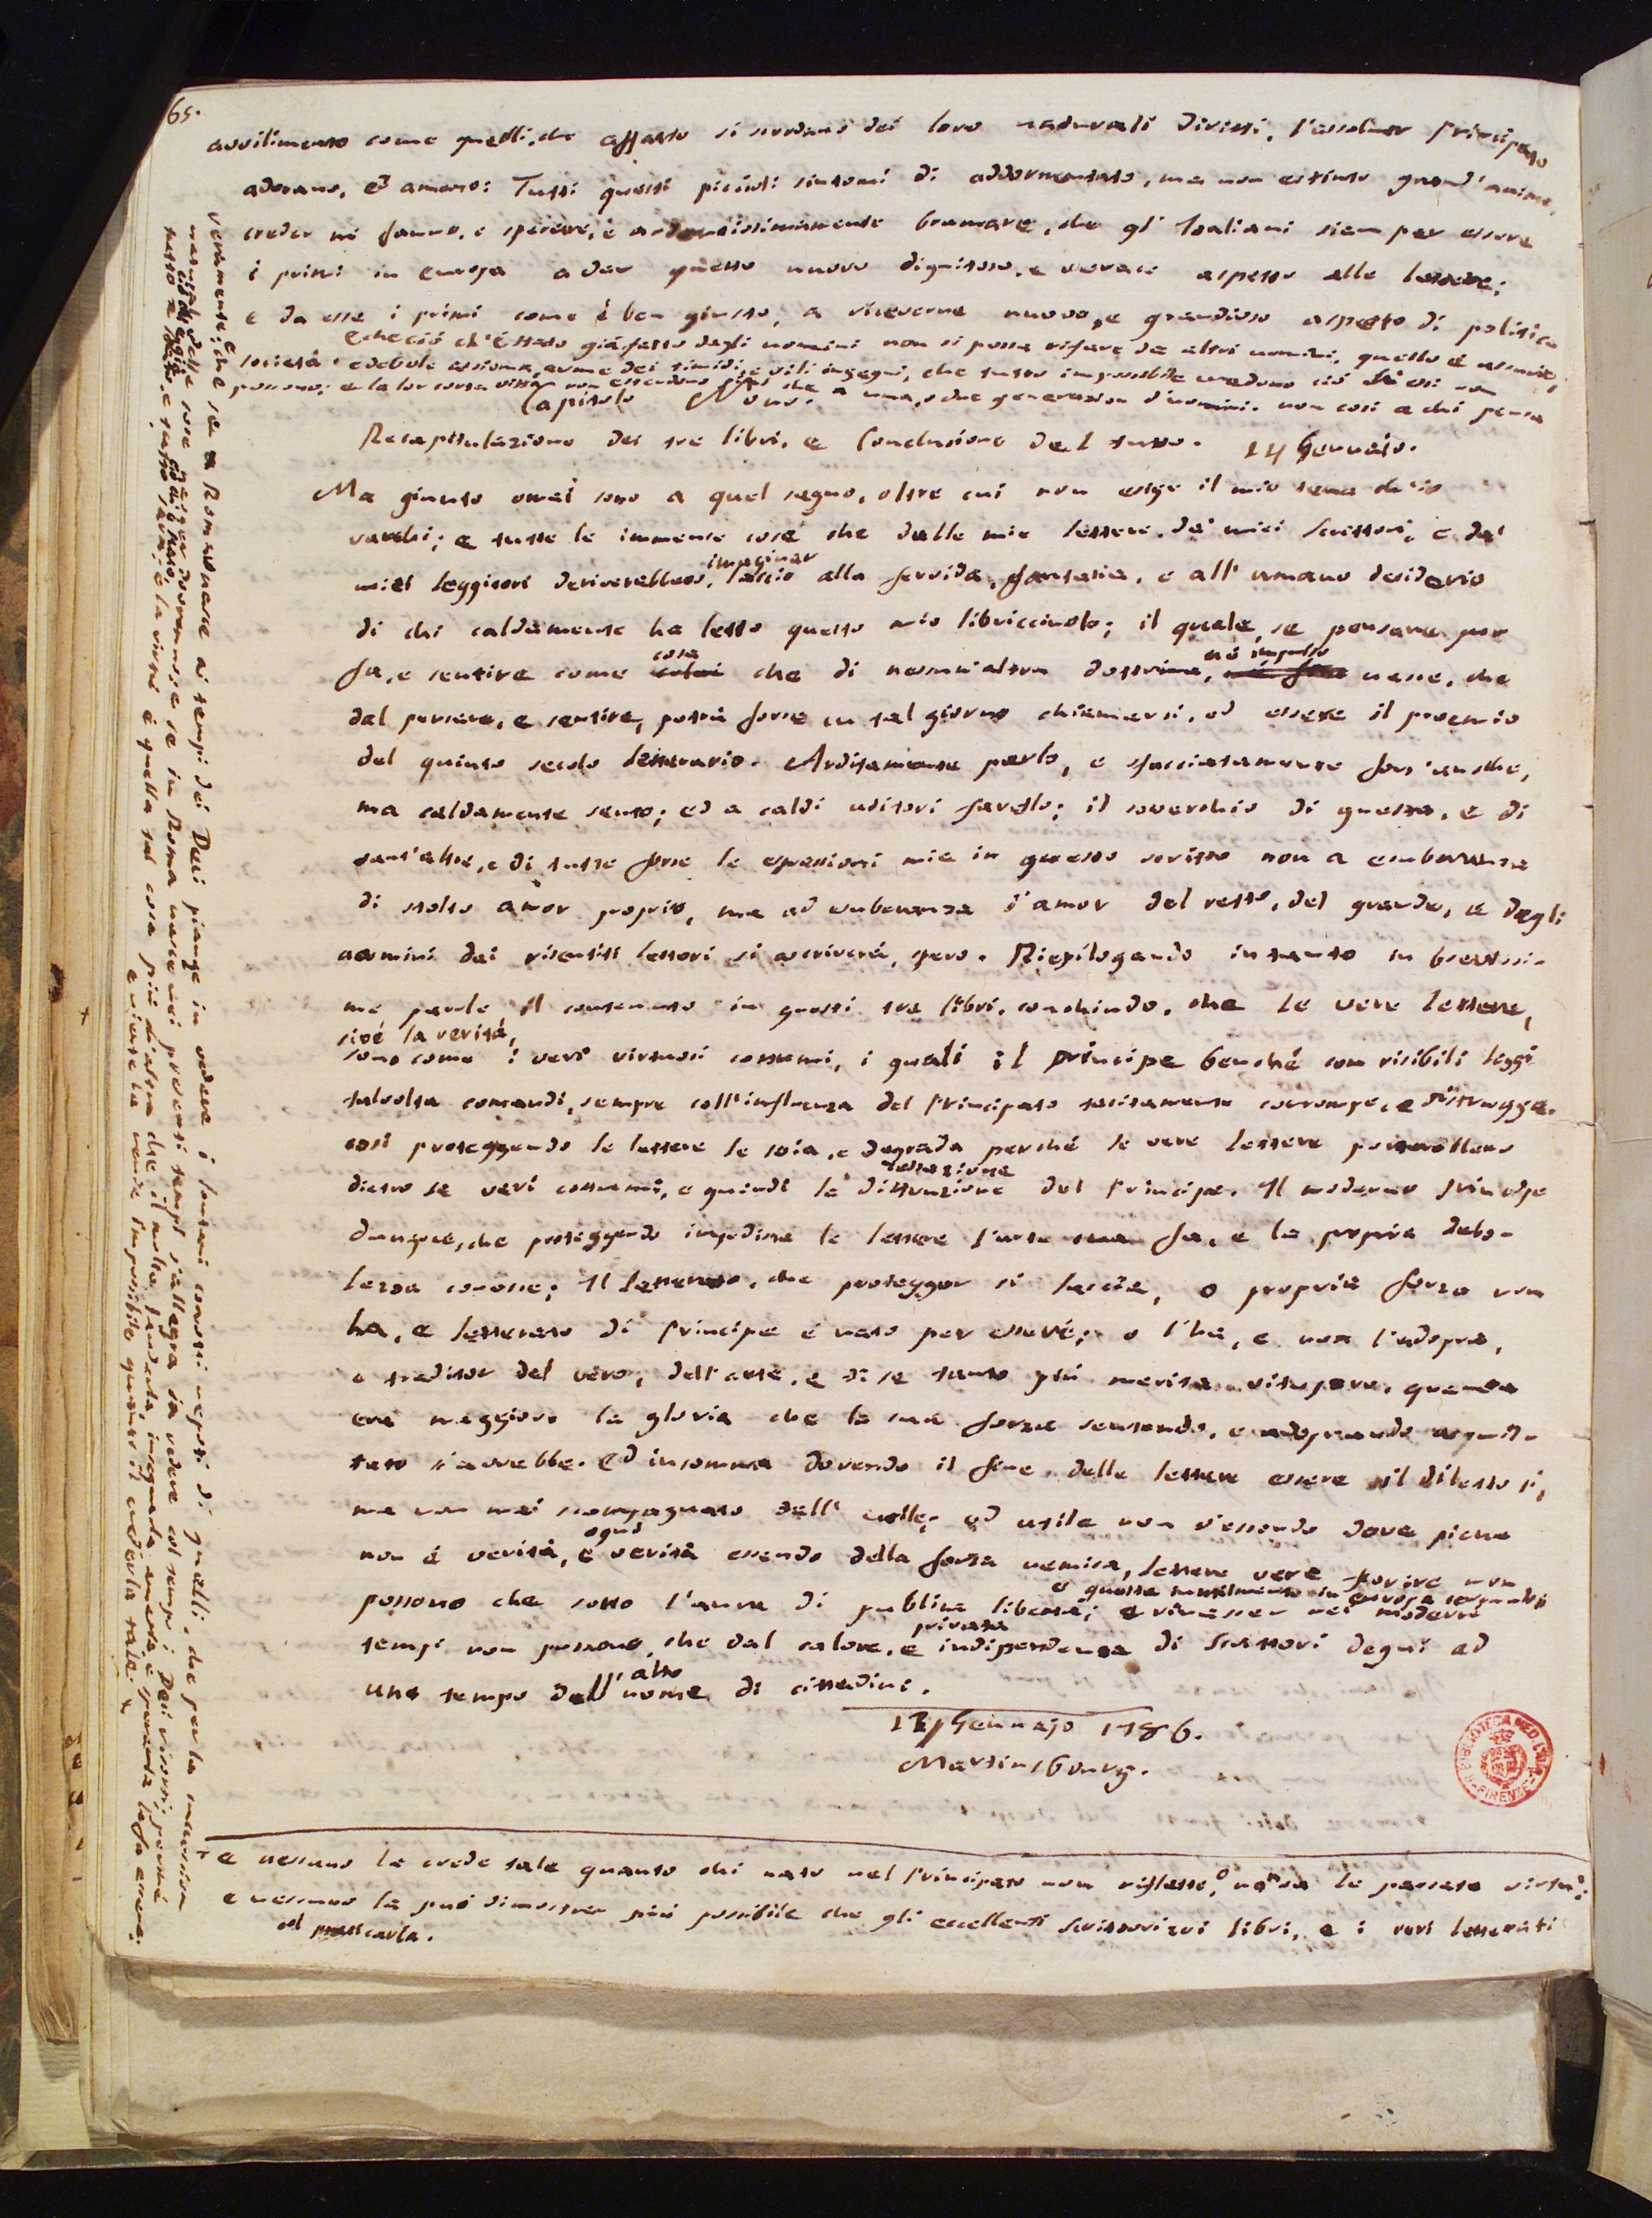 65.
avvilimento come quelli, che affatto si scordano dei loro naturali diritti, l'assoluto Principato
adorano, ed amano: Tutti questi piccioli sintomi di addormentato, ma non estinto grand'animo,
creder mi fanno, e sperare, e ardentissimamente bramare, che gl'Italiani sien per essere
i primi in europa a dar questo nuovo dignitoso, e verace aspetto alle lettere;
e da esse i primi come è ben giusto, a riceverne nuovo, e grandioso aspetto di politica
società.
E che ciò ch'è stato già fatto dagli uomini non si possa rifare da altri uomini, questo è
e debole assioma, arme dei timidi, e vili ingegni, che tutto impossibile credono ciò ch'essi non
possono; e la lor corta vista non estendono più che a una, o due generazion d'uomini. non così a chi pensa
Capitolo Nono.
Recapitulazione dei tre libri, e Conclusione del tutto. 14 Gennaio.
Ma giunto omai sono a quel segno, oltre cui non esige il mio tema ch'io
varchi; e tutte le immense cose che dalle mie lettere, da' miei scrittori, e da'
miei leggitori deriverebbero, imaginar lascio alla fervida fantasia, e all'umano desiderio
di chi caldamente ha letto questo mio libriccivolo; il quale, se pensare pur
fa, e sentire come cosa che di nessun'altra dottrina, né impulso nasce, che
dal pensare, e sentire, potrà forse un tal giorno chiamarsi, od essere il proemio
del quinto secolo letterario. Arditamente parlo, e sfacciatamente fors'anche,
ma caldamente sento; ed a caldi uditori favello; il soverchio di questa, e di
tant'altre, e di tutte forse le espressioni mie in questo scritto non a esuberanza
di stolto amor proprio, ma ad esuberanza d'amor del retto, del grande, e degli
uomini dai risentiti lettori si ascriverà, spero. Riepilogando intanto in brevissi-
me parole il contenuto in questi tre libri, conchiudo, che le vere lettere,
cioè la verità,
sono come i veri virtuosi costumi, i quali il principe benché con risibili leggi
talvolta comandi, sempre coll'influenza del Principato tacitamente corrompe, e distrugge.
così proteggendo le lettere le svia, e degrada perché le vere lettere porterebbero
dietro se veri costumi, e quindi la distruzione del Principe. Il moderno Principe
dunque, che proteggendo impedisce le lettere l'arte sua fa, e la propria debo-
lezza conosce; Il letterato, che protegger si lascia, o propria forza non
ha, e letterato di Principe è nato per essere; o l'ha, e non l'adopra,
e traditor del vero, dell'arte, e di se tanto più merita vitupero, quanto
era maggiore la gloria che la sua forza sentendo, e adoprando acquis-
tato s'avrebbe. Ed insomma dovendo il fine delle lettere essere il diletto sì,
ma non mai scompagnato dall'utile; ed utile non v'essendo dove piena
non è verità, e ogni verità essendo della forza nemica, lettere vere fiorire non
possono che sotto l'aura di publica libertà; e rinascer nei moderni
tempi non possono, che dal calore, e privata indipendenza di Scrittori degni ad
uno tempo dell'alto nome di cittadini.
17 Gennajo 1786.
Martinsbourg.
+ e nessuno la crede tale quanto chi nato nel Principato non riflette, o non sa le passate virtù:
e nessuno la può dimostrar più possibile che gli eccellenti scrittori coi libri, e i veri letterati
col praticarla.
veramente; e che se a Roma nasce ai tempi dei Deci piange in vedere i lontani corrotti nepoti di quelli, che per la
naturale delle cose nascer dovranno; se in Roma nasce nei presenti tempi s'allegra in vedere col tempo i Deci risorti; perché
tutto è stato, e tutto sarà; e la virtù è quella tal cosa più d'altra che il molto laudarla, insegnarla, amarla, e sperarla la fa essere;
e niente la rende impossibile quanto il crederla tale. +
BIBLIOTECA MED. LAUR. FIRENZE